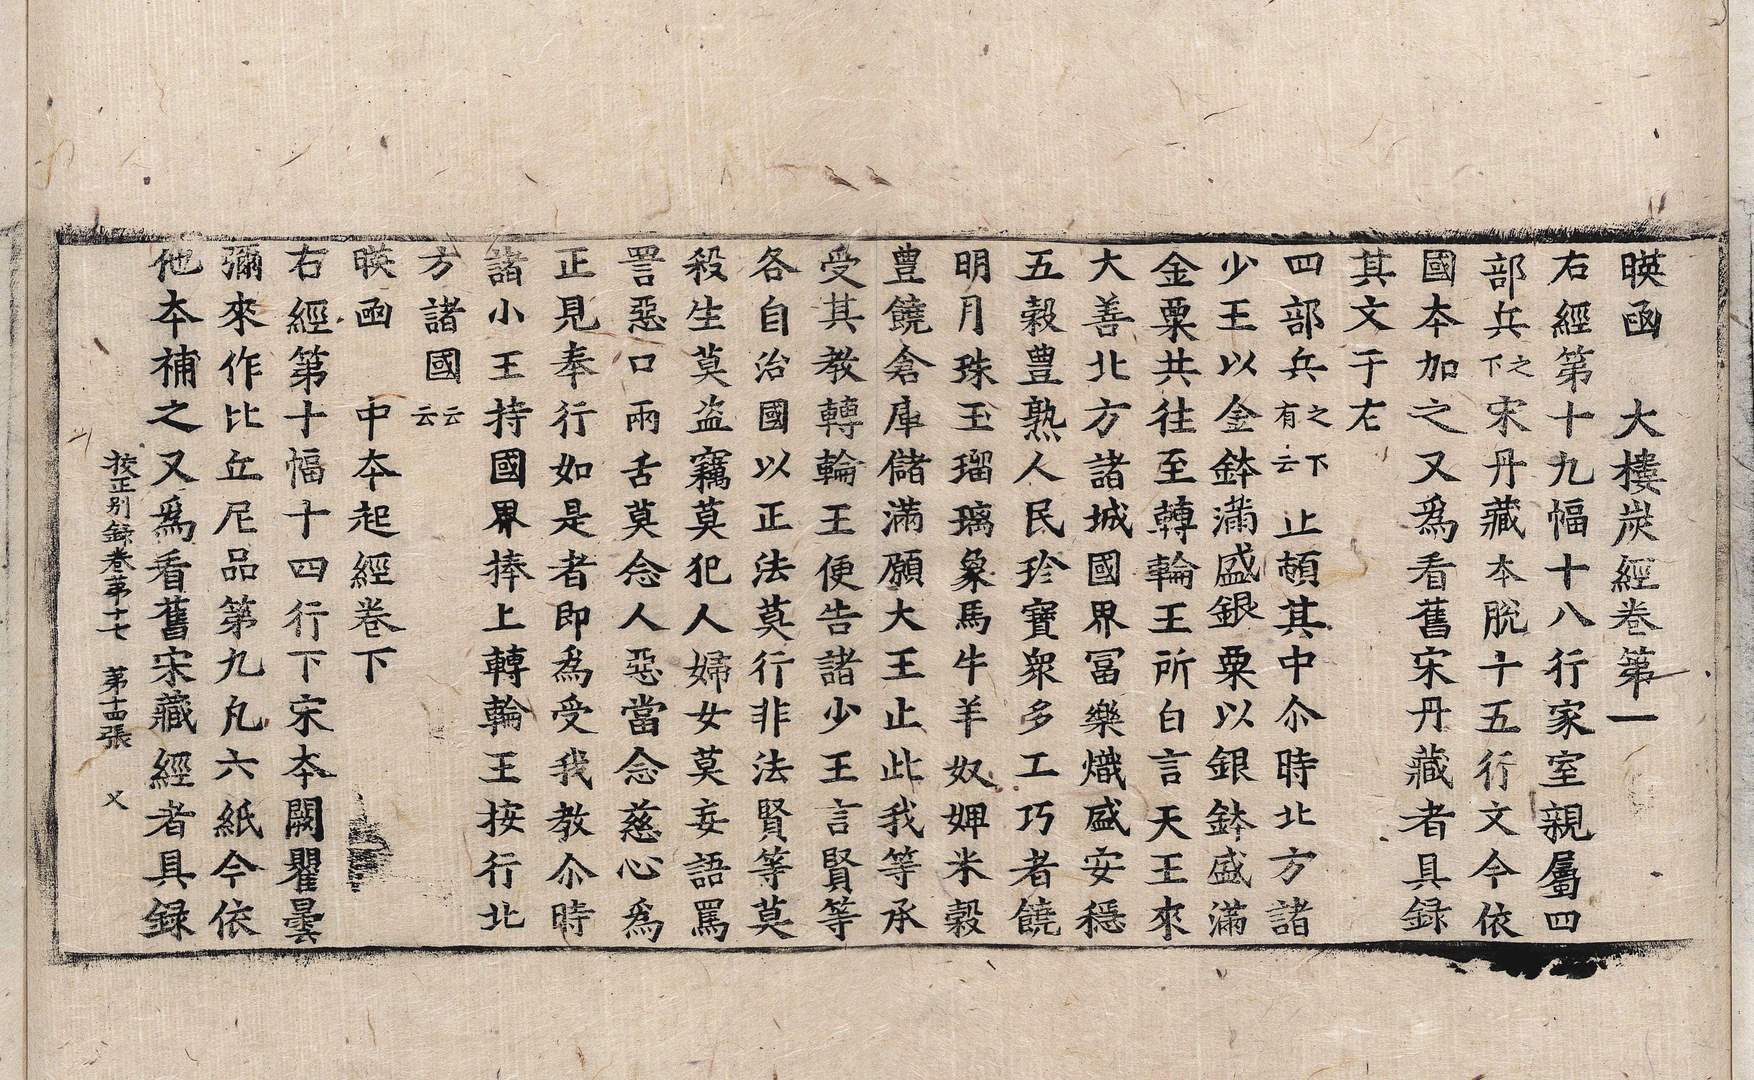 暎函　大樓炭經卷第一
右經第十九幅十八行家室親屬四
部兵之下宋丹藏本脫十五行文今依
國本加之又爲看舊宋丹藏者具録
其文于左
四部兵之下有云止頓其中尒時北方諸
少王以金鉢滿盛銀粟以銀鉢盛滿
金粟共往至轉輪王所白言天王來
大善北方諸城國界冨樂熾盛安穩
五穀豊熟人民珍寶衆多工巧者饒
明月珠玉瑠璃象馬牛羊奴婢米穀
豊饒倉庫儲滿願大王止此我等承
受其教轉輪王便告諸少王言賢等
各自治國以正法莫行非法賢等莫
殺生莫盗竊莫犯人婦女莫妄語罵
詈惡口兩舌莫念人惡當念慈心爲
正見奉行如是者即爲受我教尒時
諸小王持國界捧上轉輪王按行北
方諸國云云
暎函　中夲起經卷下
右經第十幅十四行下宋夲闕瞿曇
彌來作比丘尼品第九凡六紙今依
他夲補之又爲看舊宋藏經者具録
挍正别録卷苐十七　苐十四張　乂